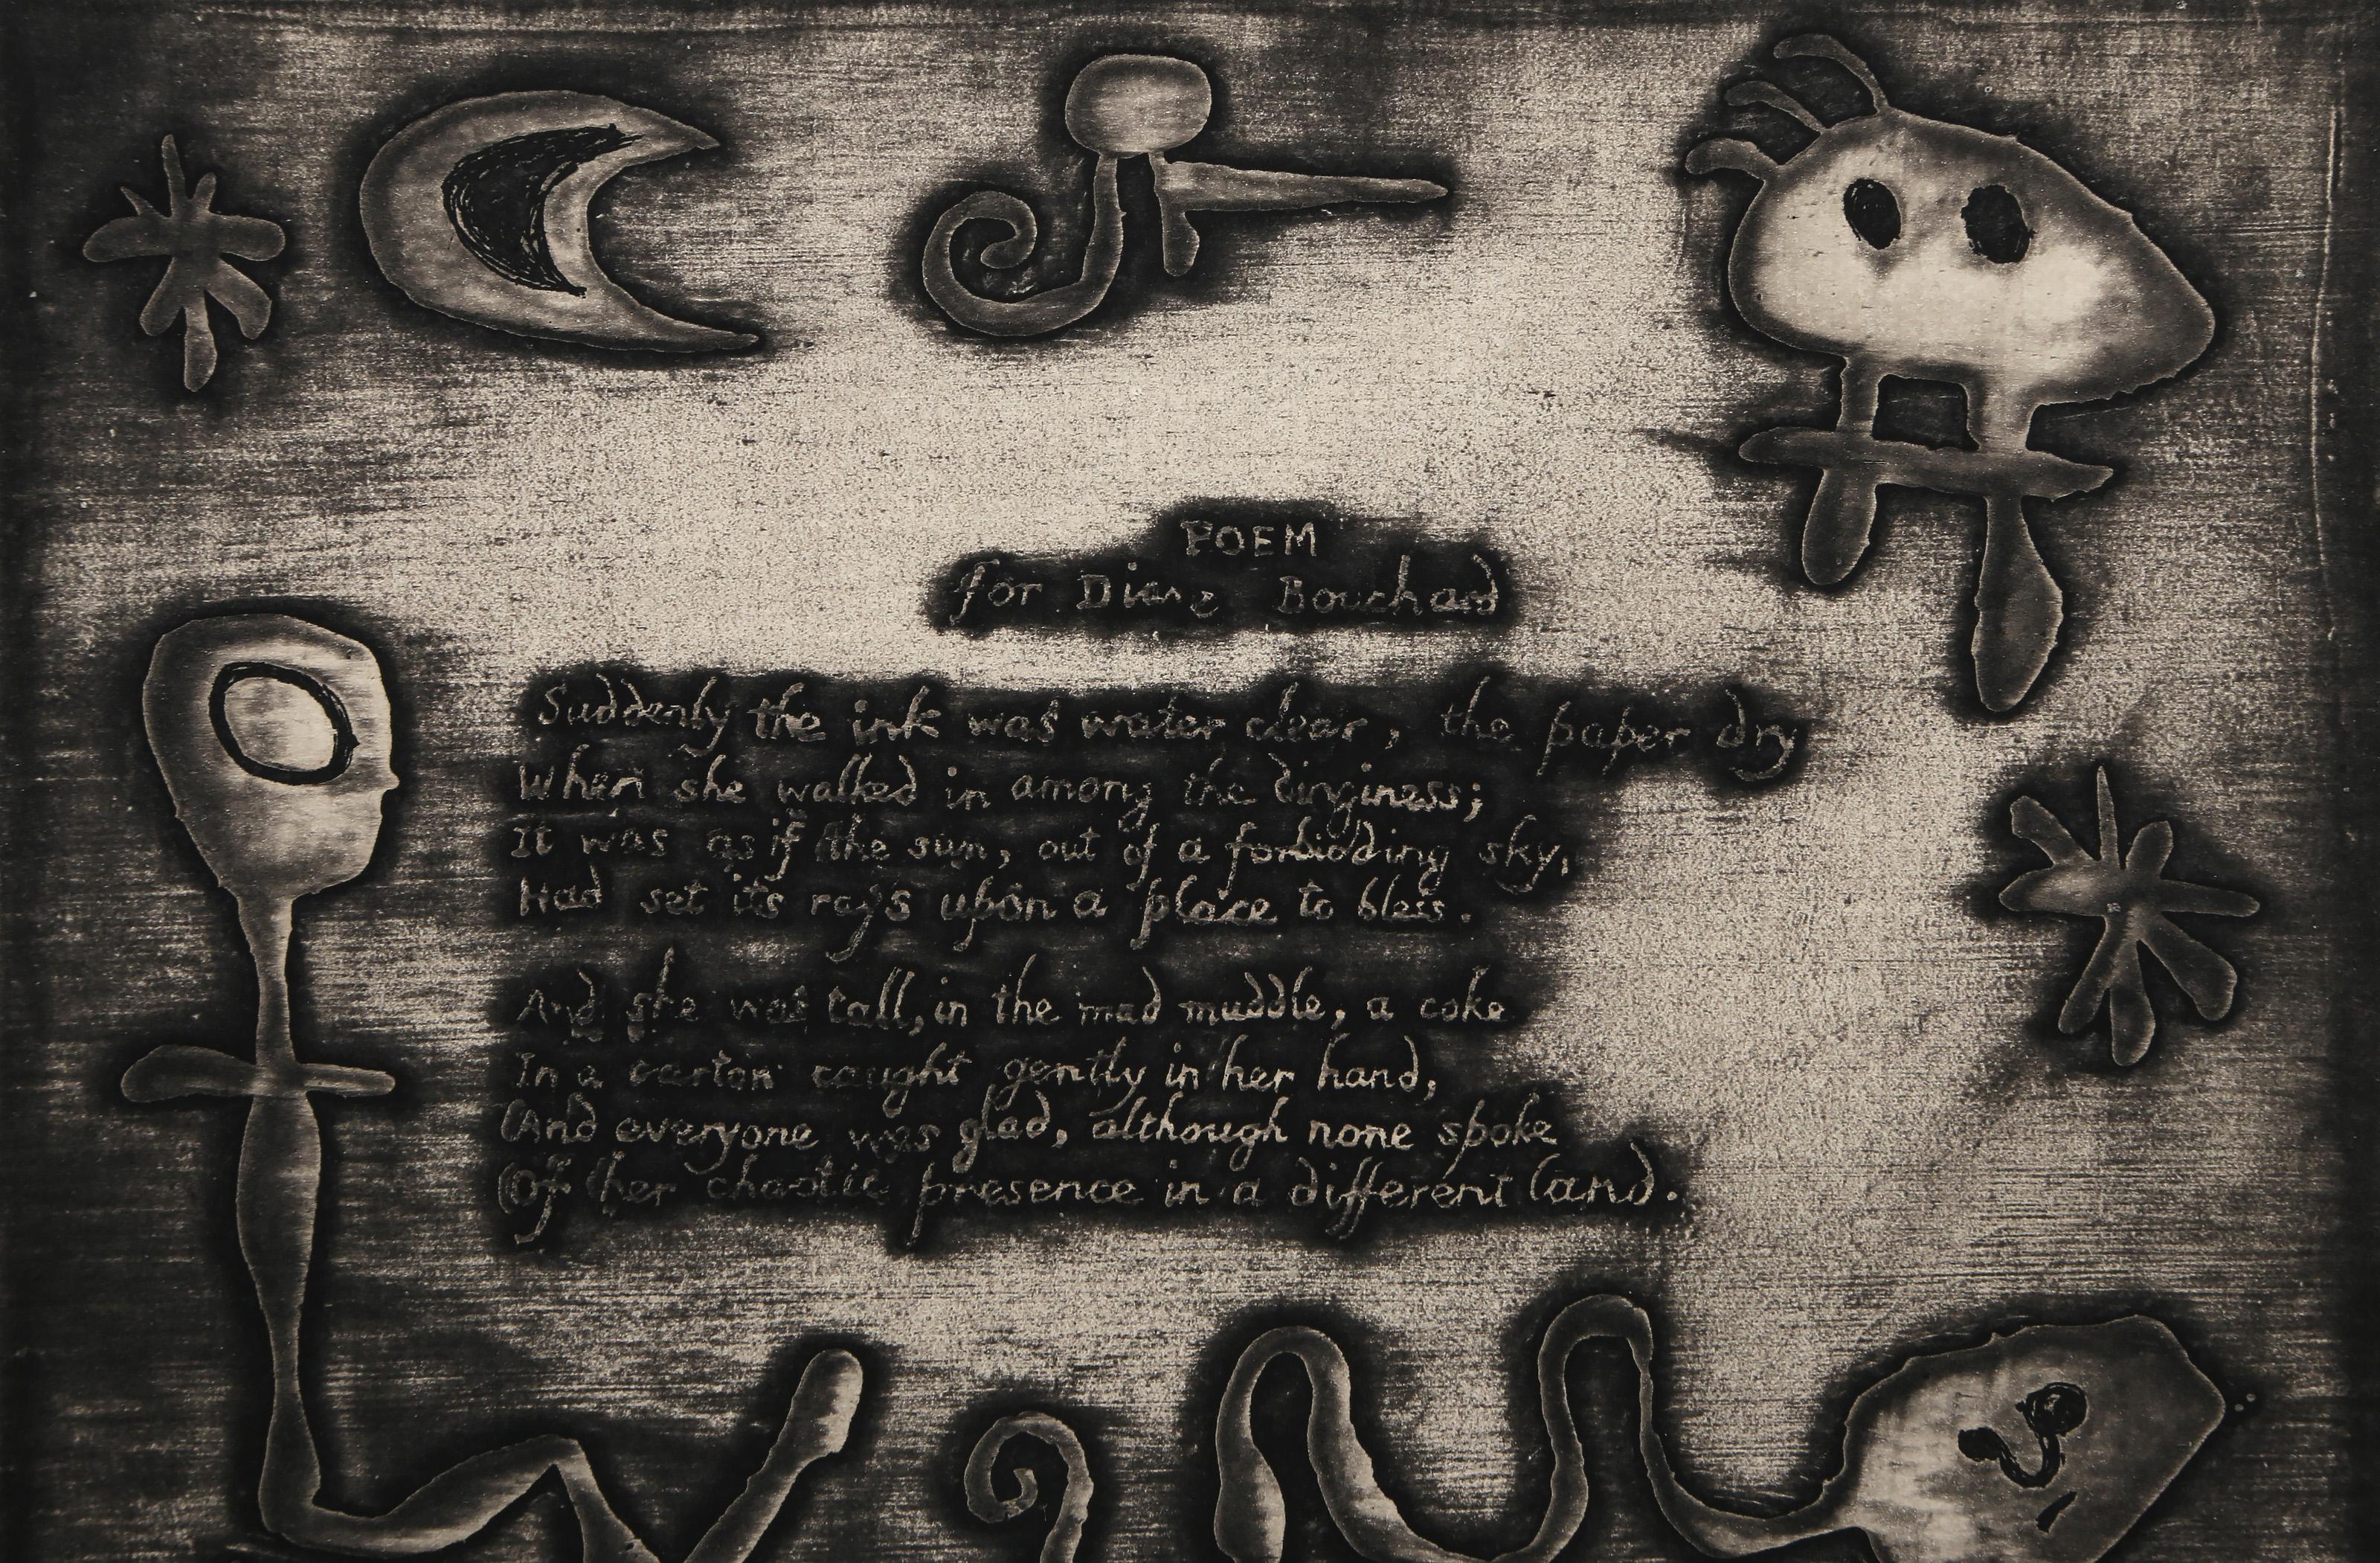 POEM
for Diane Bouchard
Suddenly the ink was water clear, the paper dry
When she walked in among the dinginess;
It was as if the sun, out of a forbidding sky,
Had set its rays upon a place to bless.
And she was tall, in the mad muddle, a coke
In a carton caught gently in her hand,
And everyone was glad, although none spoke
Of her chaotic presence in a different land.